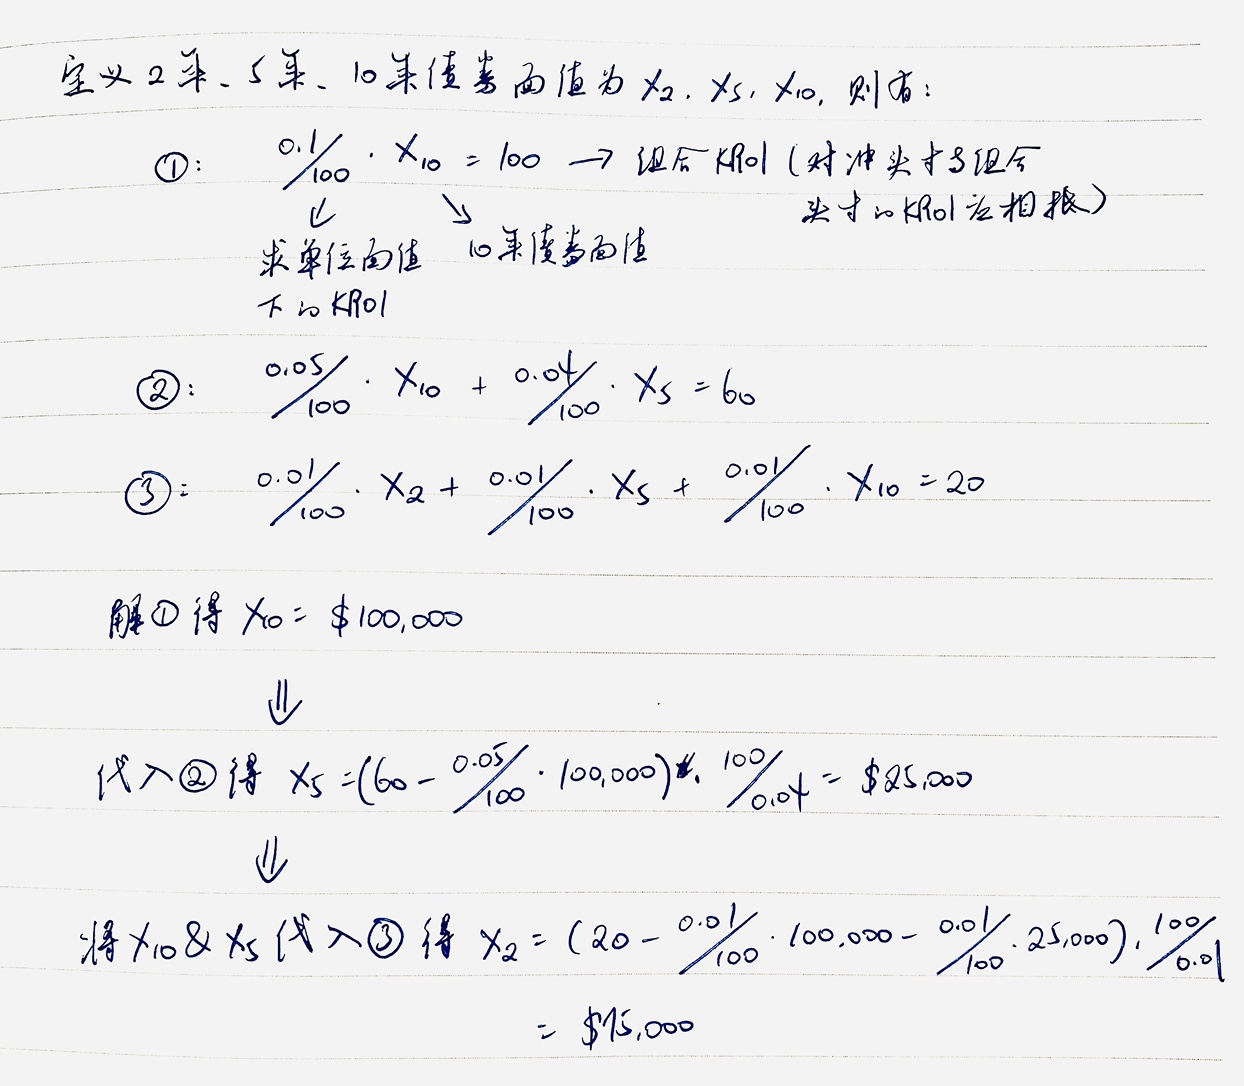 定义2年、5年、10年债券面值为 X₂. X₅, X₁₀, 则有:
①: 0.1/100 · X₁₀ = 100 → 组合KR01 (对冲头寸与组合
头寸的KR01应相抵)
↓ ↘
求单位面值 10年债券面值
下的KR01
②: 0.05/100 · X₁₀ + 0.04/100 · X₅ = 60
③: 0.01/100 · X₂ + 0.01/100 · X₅ + 0.01/100 · X₁₀ = 20
解①得 X₁₀ = $100,000
⇓
代入②得 X₅ = (60 - 0.05/100 · 100,000) · 100/0.04 = $25,000
⇓
将X₁₀ & X₅代入③得 X₂ = (20 - 0.01/100 · 100,000 - 0.01/100 · 25,000) · 100/0.01
= $75,000